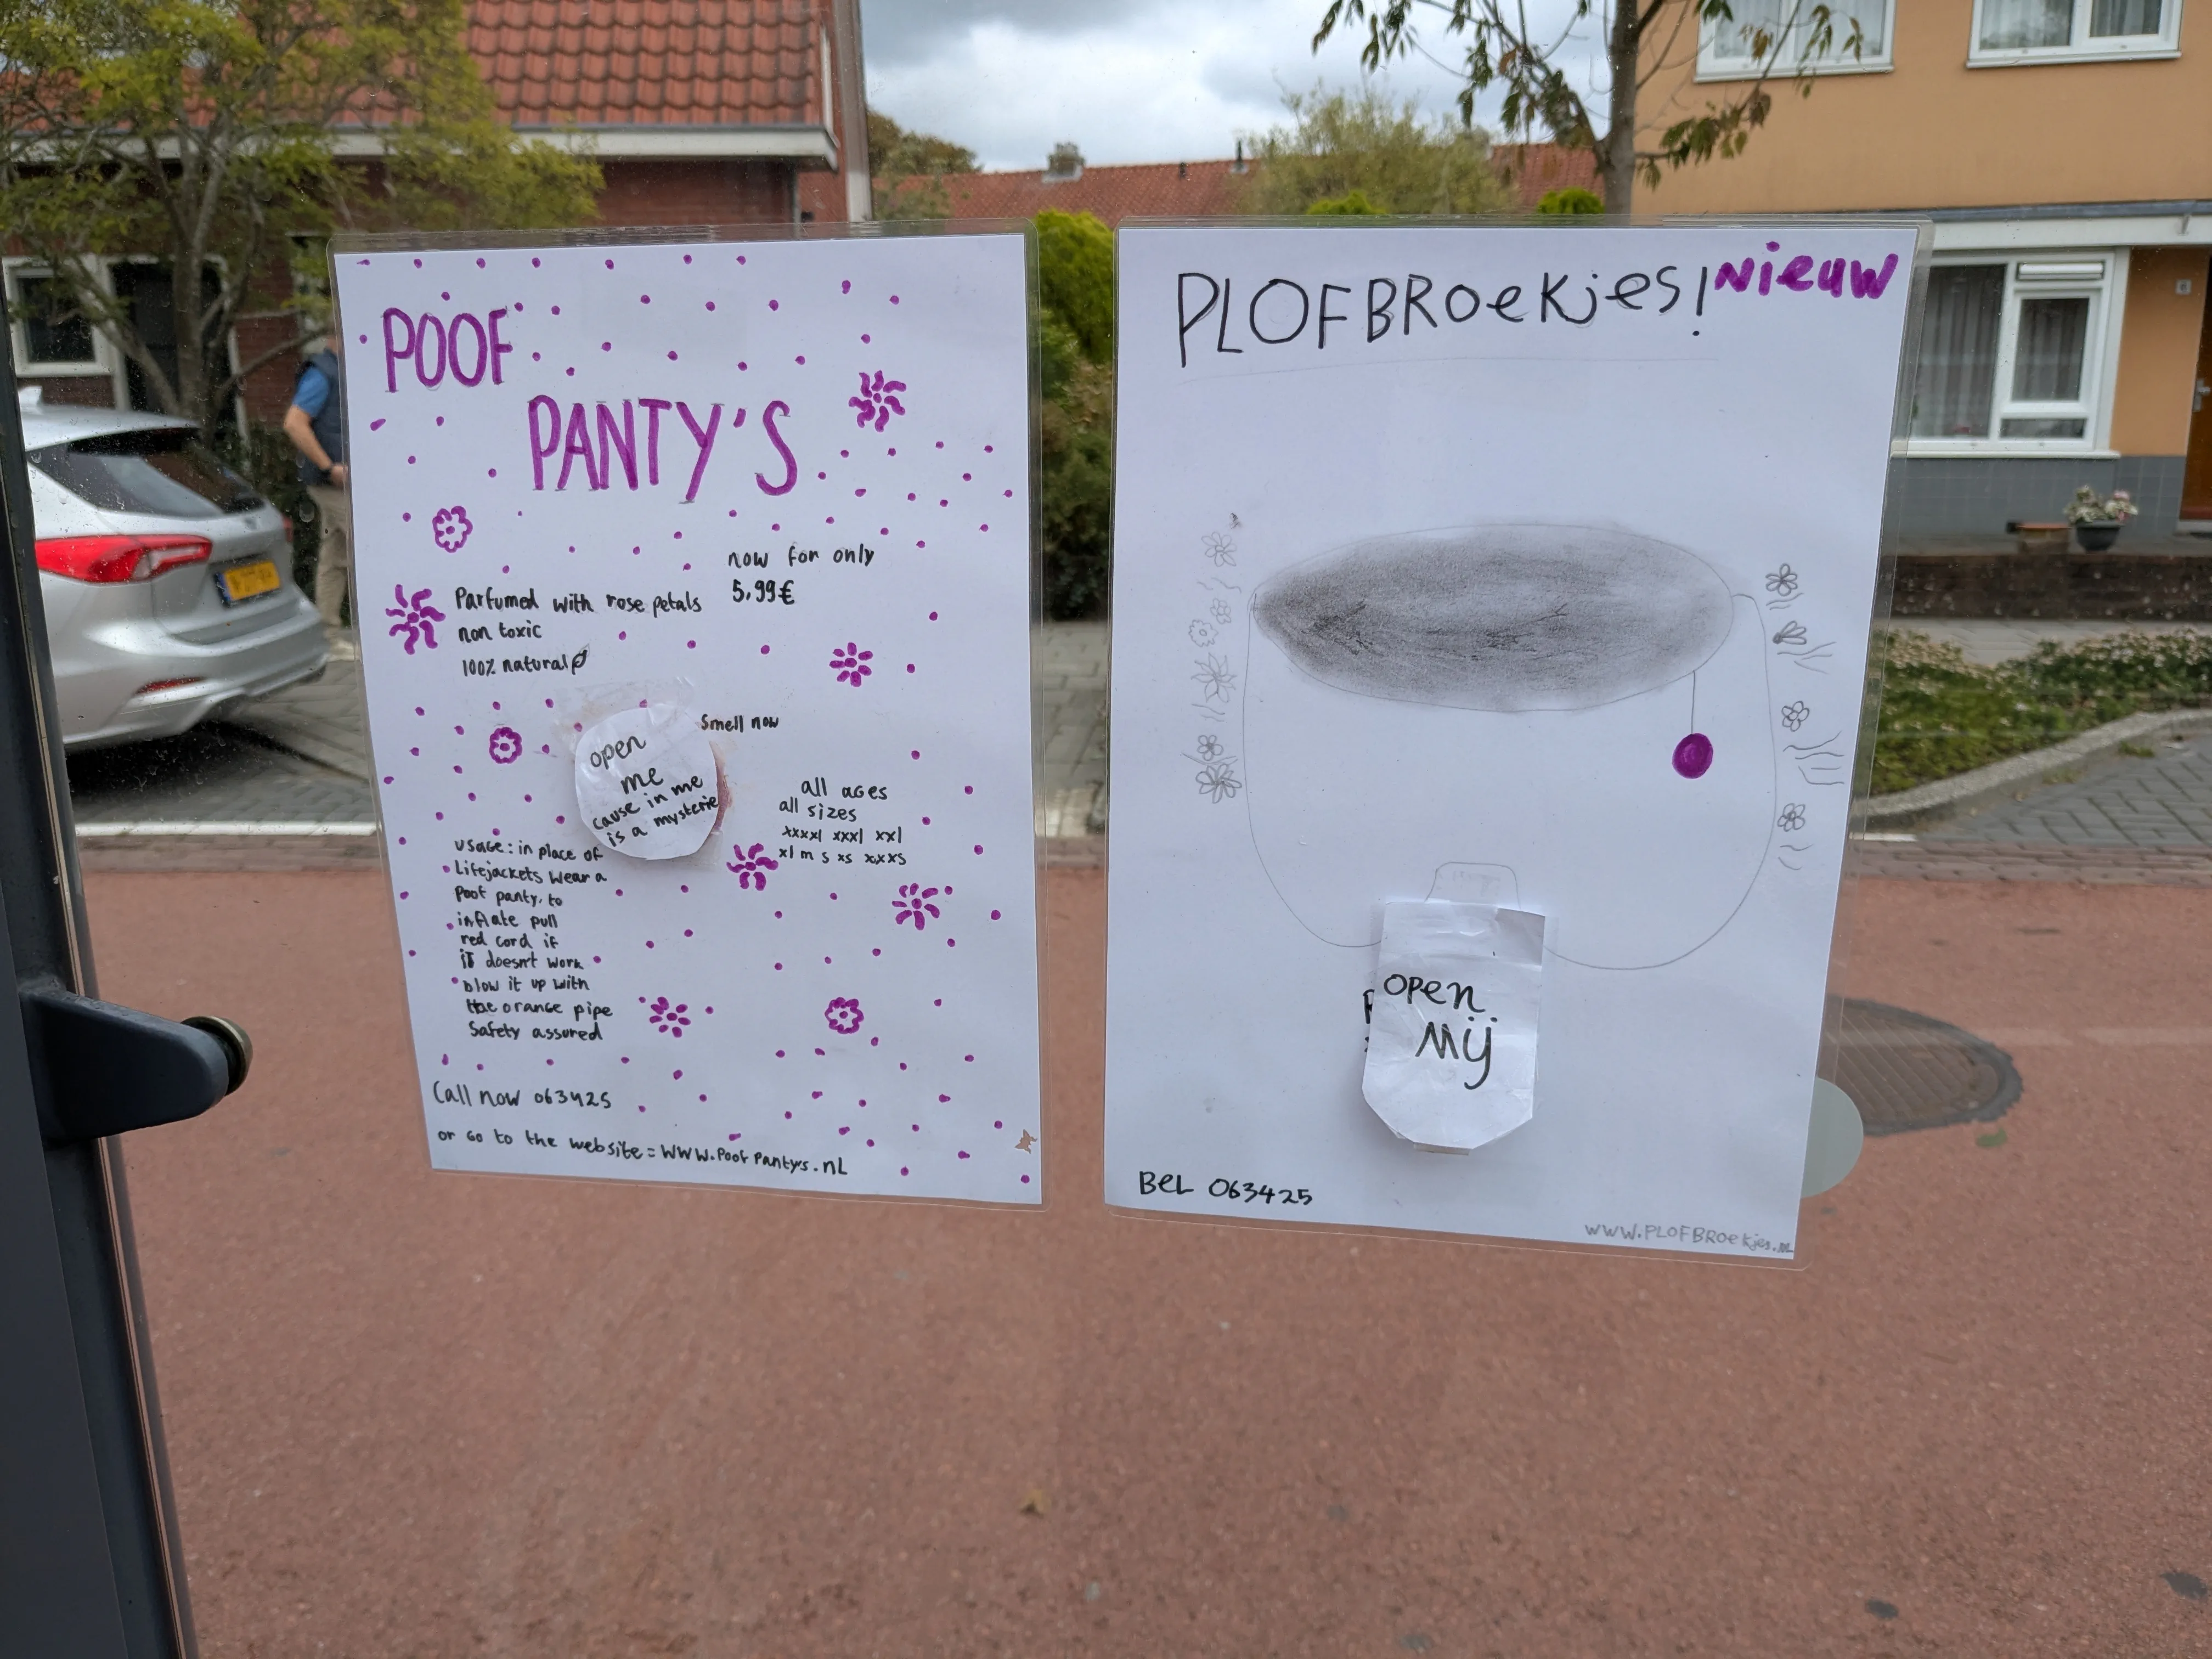 POOF
PANTY'S
now for only
5.99€
Parfumed with rose petals
non toxic
100% natural
Smell now
open
me
cause in me
is a mysterie
all ages
all sizes
xxxxl xxxl xxl
xl m s xs xxxs
usage: in place of
Lifejackets wear a
Poof panty. to
inflate pull
red cord if
it doesn't work
blow it up with
the orange pipe
Safety assured
Call now 063425
or go to the website = WWW.Poof Pantys.nL
PLOFBROekjes!
Nieuw
open
Mij
BeL 063425
WWW.PLOFBROekjes.NL